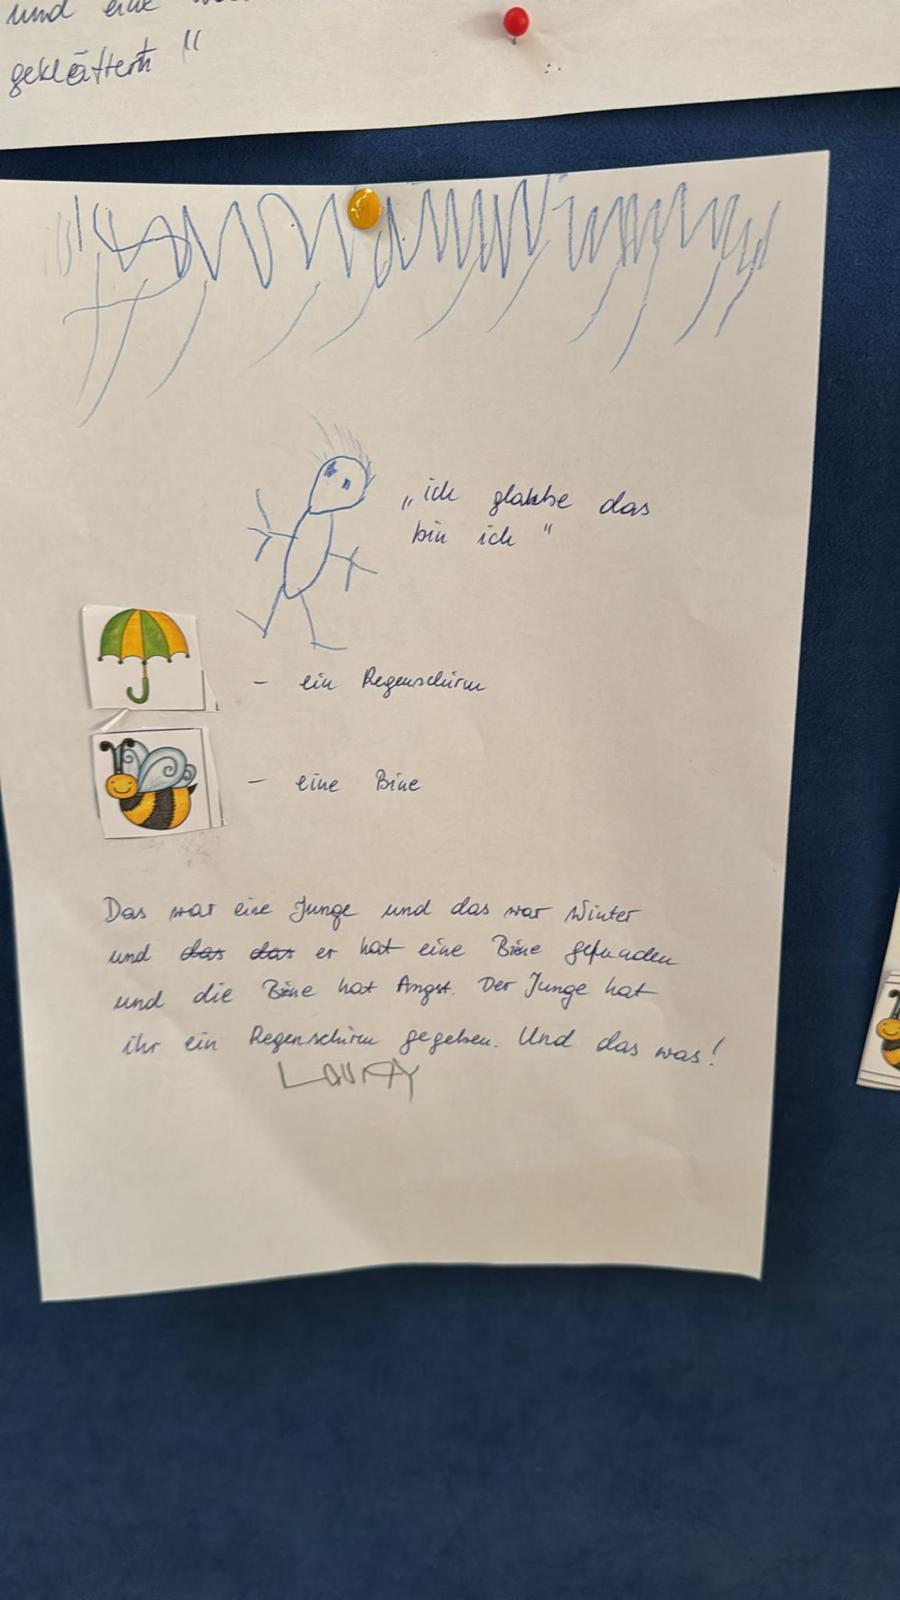 und eine
geklättert "
„ich glaube das
bin ich "
- ein Regenschirm
- eine Bine
Das war eine Junge und das war Winter
und das das er hat eine Bine gefunden
und die Bine hat Angst. Der Junge hat
ihr ein Regenschirm gegeben. Und das was!